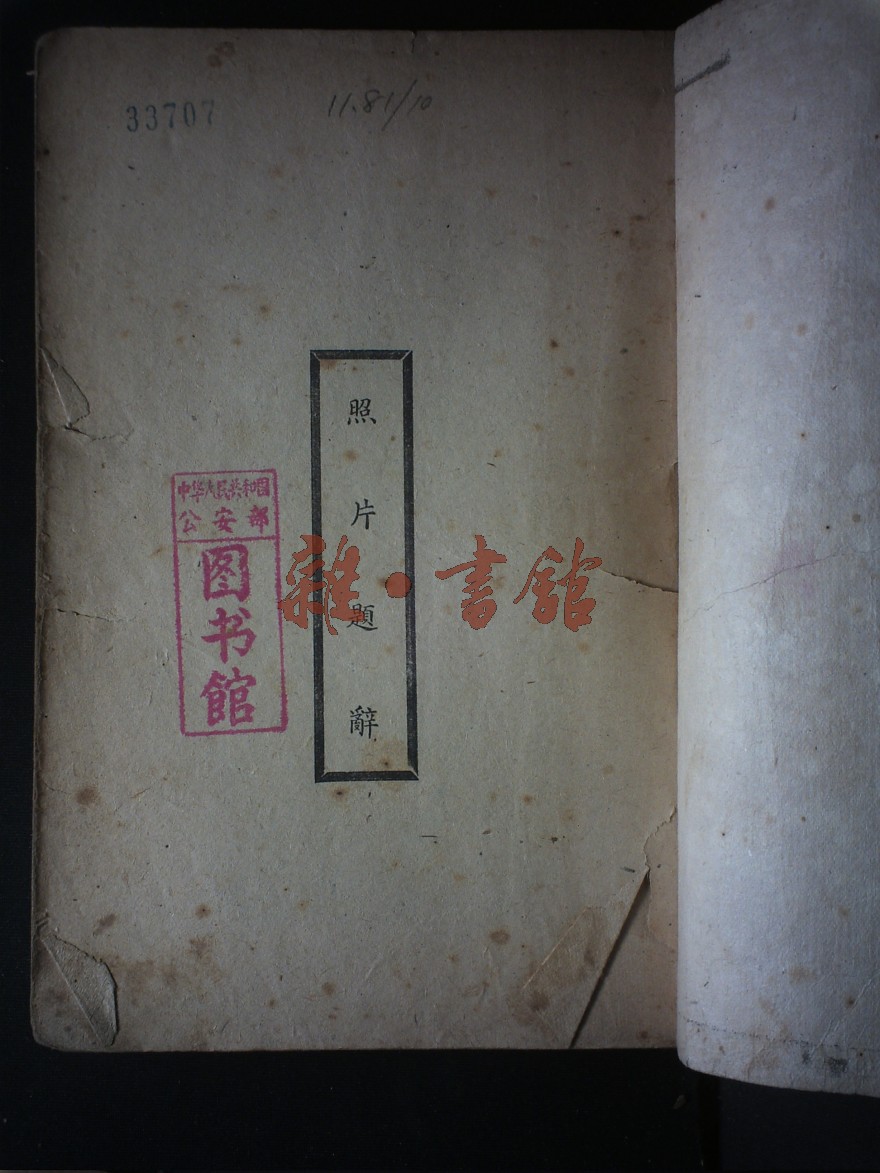 33707
11.81/10
照片題辭
中华人民共和国
公安部
图书馆
雜·書館